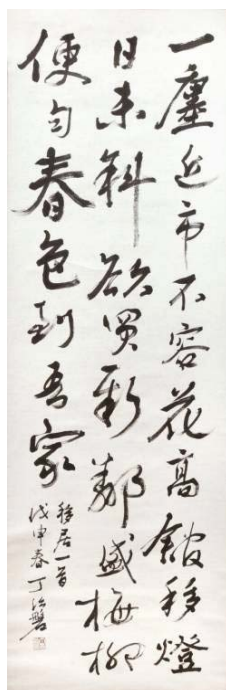 一廛近市不容花高館移燈
日未斜欲買新鄰盛梅柳
便勻春色到吾家
移居一首
戊申春丁治磐